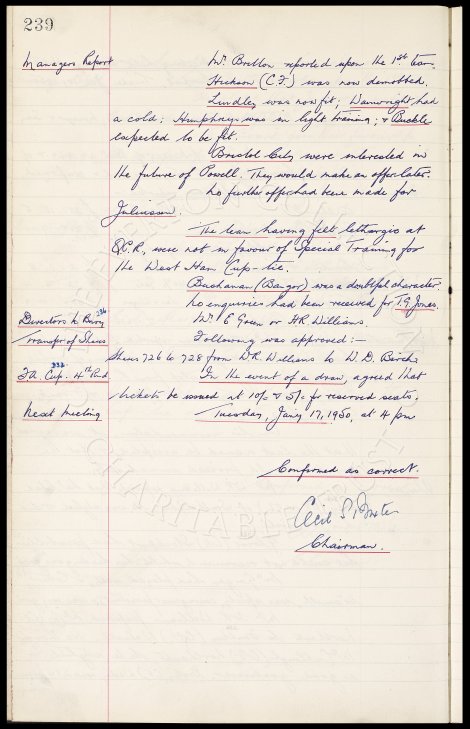 239
Managers Report Mr Britton reported upon the 1st team.
Hickson (C.F.) was now demobbed.
Lindley was now fit; Wainwright had
a cold; Humphreys was in light training; & Buckle
expected to be fit.
Bristol City were interested in
the future of Powell. They would make an offer later.
No further offer had been made for
Juliussen.
The team having felt lethargic at
Q.P.R., were not in favour of Special Training for
the West Ham Cup-tie.
Buchanan (Bangor) was a doubtful character.
No enquiries had been received for T.G. Jones.
Directors to Bury 236 Mr E Green or HR Williams.
Transfer of Shares Following was approved:-
Shares 726 to 728 from W.R. Williams to W.D. Birch.
F.A. Cup. 4th Rnd 232 In the event of a draw, agreed that
tickets be issued at 10/- & 5/- for reserved seats.
Next Meeting Tuesday, Jany 17, 1950, at 4 pm
Confirmed as correct.
Cecil S. Baxter
Chairman.
EVERTON
CHARITABLE